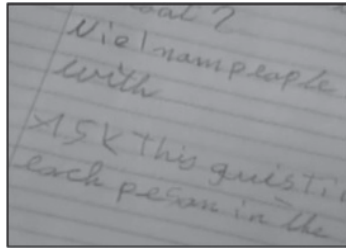 oat ?
Vietnam people
with
ASK This quistin
each peson in the